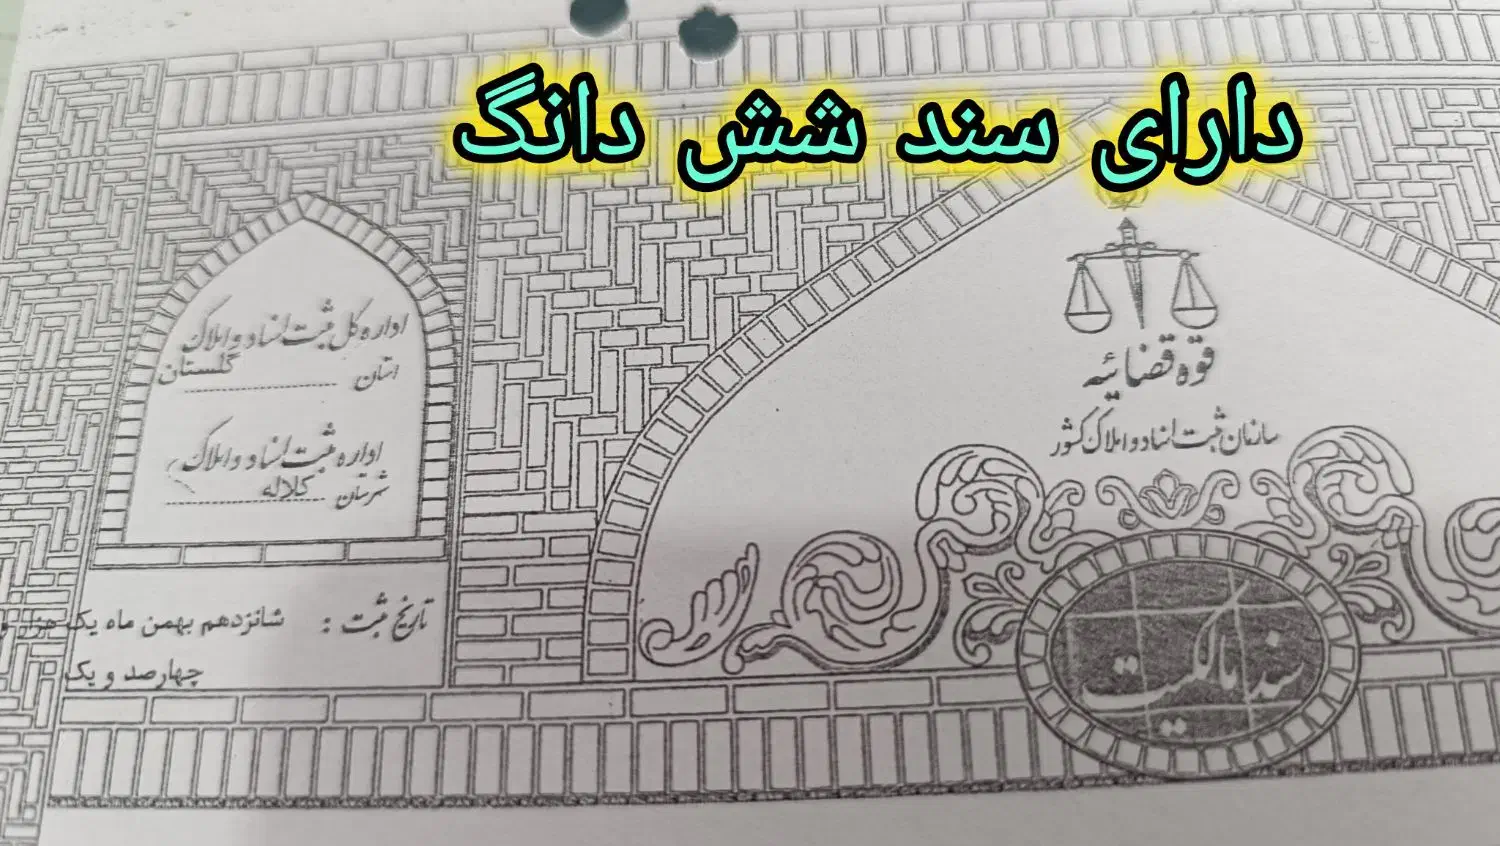 دارای سند شش دانگ
قوه قضائیه
سازمان ثبت اسناد و املاک کشور
سند مالکیت
اداره کل ثبت اسناد و املاک
استان گلستان
اداره ثبت اسناد و املاک
شهرستان کلاله
تاریخ ثبت : شانزدهم بهمن ماه یک هزار و
چهارصد و یک